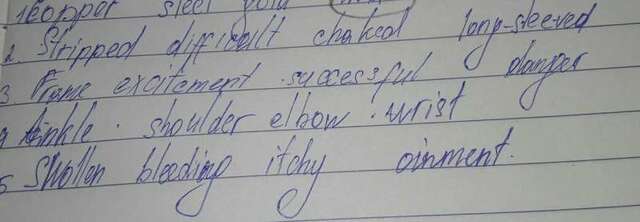 1 copper steel gold
2. Stripped difficult chaked long-sleeved
3 Frame excitement successful danger
4 ankle. shoulder elbow. wrist
5 Swollen bleeding itchy oinment.